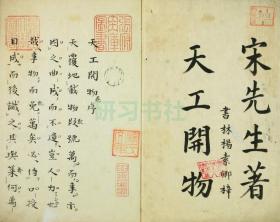 宋先生著
天工開物
書林楊素卿梓
天工開物序
天覆地載物數號萬而事亦
因之曲成而不遺豈人力也
哉事物而既萬矣必待口授
目成而後識之其與幾何萬
研习书社